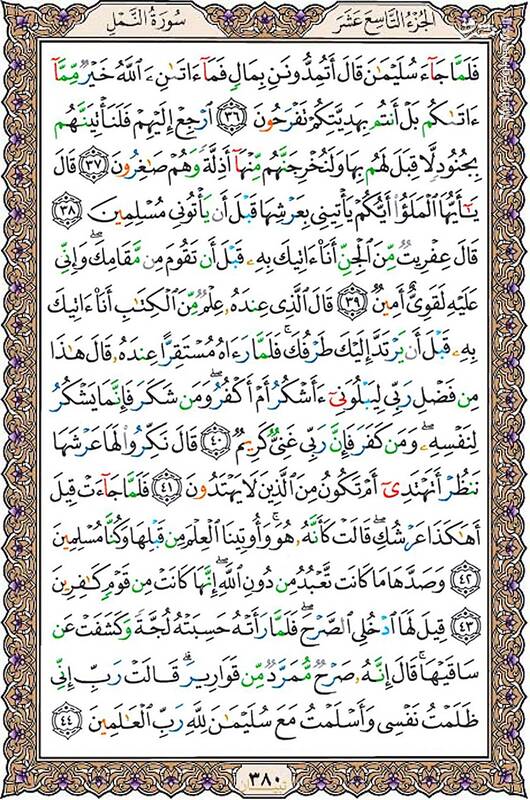 الجُزءُ التَّاسِعَ عَشَرَ
سُورَةُ النَّمۡلِ
فَلَمَّا جَآءَ سُلَيۡمَٰنَ قَالَ أَتُمِدُّونَنِ بِمَالٖ فَمَآ ءَاتَىٰنِۦَ ٱللَّهُ خَيۡرٞ مِّمَّآ
ءَاتَىٰكُم بَلۡ أَنتُم بِهَدِيَّتِكُمۡ تَفۡرَحُونَ ٣٦ ٱرۡجِعۡ إِلَيۡهِمۡ فَلَنَأۡتِيَنَّهُم
بِجُنُودٖ لَّا قِبَلَ لَهُم بِهَا وَلَنُخۡرِجَنَّهُم مِّنۡهَآ أَذِلَّةٗ وَهُمۡ صَٰغِرُونَ ٣٧ قَالَ
يَٰٓأَيُّهَا ٱلۡمَلَؤُاْ أَيُّكُمۡ يَأۡتِينِي بِعَرۡشِهَا قَبۡلَ أَن يَأۡتُونِي مُسۡلِمِينَ ٣٨
قَالَ عِفۡرِيتٞ مِّنَ ٱلۡجِنِّ أَنَا۠ ءَاتِيكَ بِهِۦ قَبۡلَ أَن تَقُومَ مِن مَّقَامِكَۖ وَإِنِّي
عَلَيۡهِ لَقَوِيٌّ أَمِينٞ ٣٩ قَالَ ٱلَّذِي عِندَهُۥ عِلۡمٞ مِّنَ ٱلۡكِتَٰبِ أَنَا۠ ءَاتِيكَ
بِهِۦ قَبۡلَ أَن يَرۡتَدَّ إِلَيۡكَ طَرۡفُكَۚ فَلَمَّا رَءَاهُ مُسۡتَقِرًّا عِندَهُۥ قَالَ هَٰذَا
مِن فَضۡلِ رَبِّي لِيَبۡلُوَنِيٓ ءَأَشۡكُرُ أَمۡ أَكۡفُرُۖ وَمَن شَكَرَ فَإِنَّمَا يَشۡكُرُ
لِنَفۡسِهِۦۖ وَمَن كَفَرَ فَإِنَّ رَبِّي غَنِيّٞ كَرِيمٞ ٤٠ قَالَ نَكِّرُواْ لَهَا عَرۡشَهَا
نَنظُرۡ أَتَهۡتَدِيٓ أَمۡ تَكُونُ مِنَ ٱلَّذِينَ لَا يَهۡتَدُونَ ٤١ فَلَمَّا جَآءَتۡ قِيلَ
أَهَٰكَذَا عَرۡشُكِۖ قَالَتۡ كَأَنَّهُۥ هُوَۚ وَأُوتِينَا ٱلۡعِلۡمَ مِن قَبۡلِهَا وَكُنَّا مُسۡلِمِينَ
٤٢ وَصَدَّهَا مَا كَانَت تَّعۡبُدُ مِن دُونِ ٱللَّهِۖ إِنَّهَا كَانَتۡ مِن قَوۡمٖ كَٰفِرِينَ
٤٣ قِيلَ لَهَا ٱدۡخُلِي ٱلصَّرۡحَۖ فَلَمَّا رَأَتۡهُ حَسِبَتۡهُ لُجَّةٗ وَكَشَفَتۡ عَن
سَاقَيۡهَاۚ قَالَ إِنَّهُۥ صَرۡحٞ مُّمَرَّدٞ مِّن قَوَارِيرَۗ قَالَتۡ رَبِّ إِنِّي
ظَلَمۡتُ نَفۡسِي وَأَسۡلَمۡتُ مَعَ سُلَيۡمَٰنَ لِلَّهِ رَبِّ ٱلۡعَٰلَمِينَ ٤٤
٣٨٠